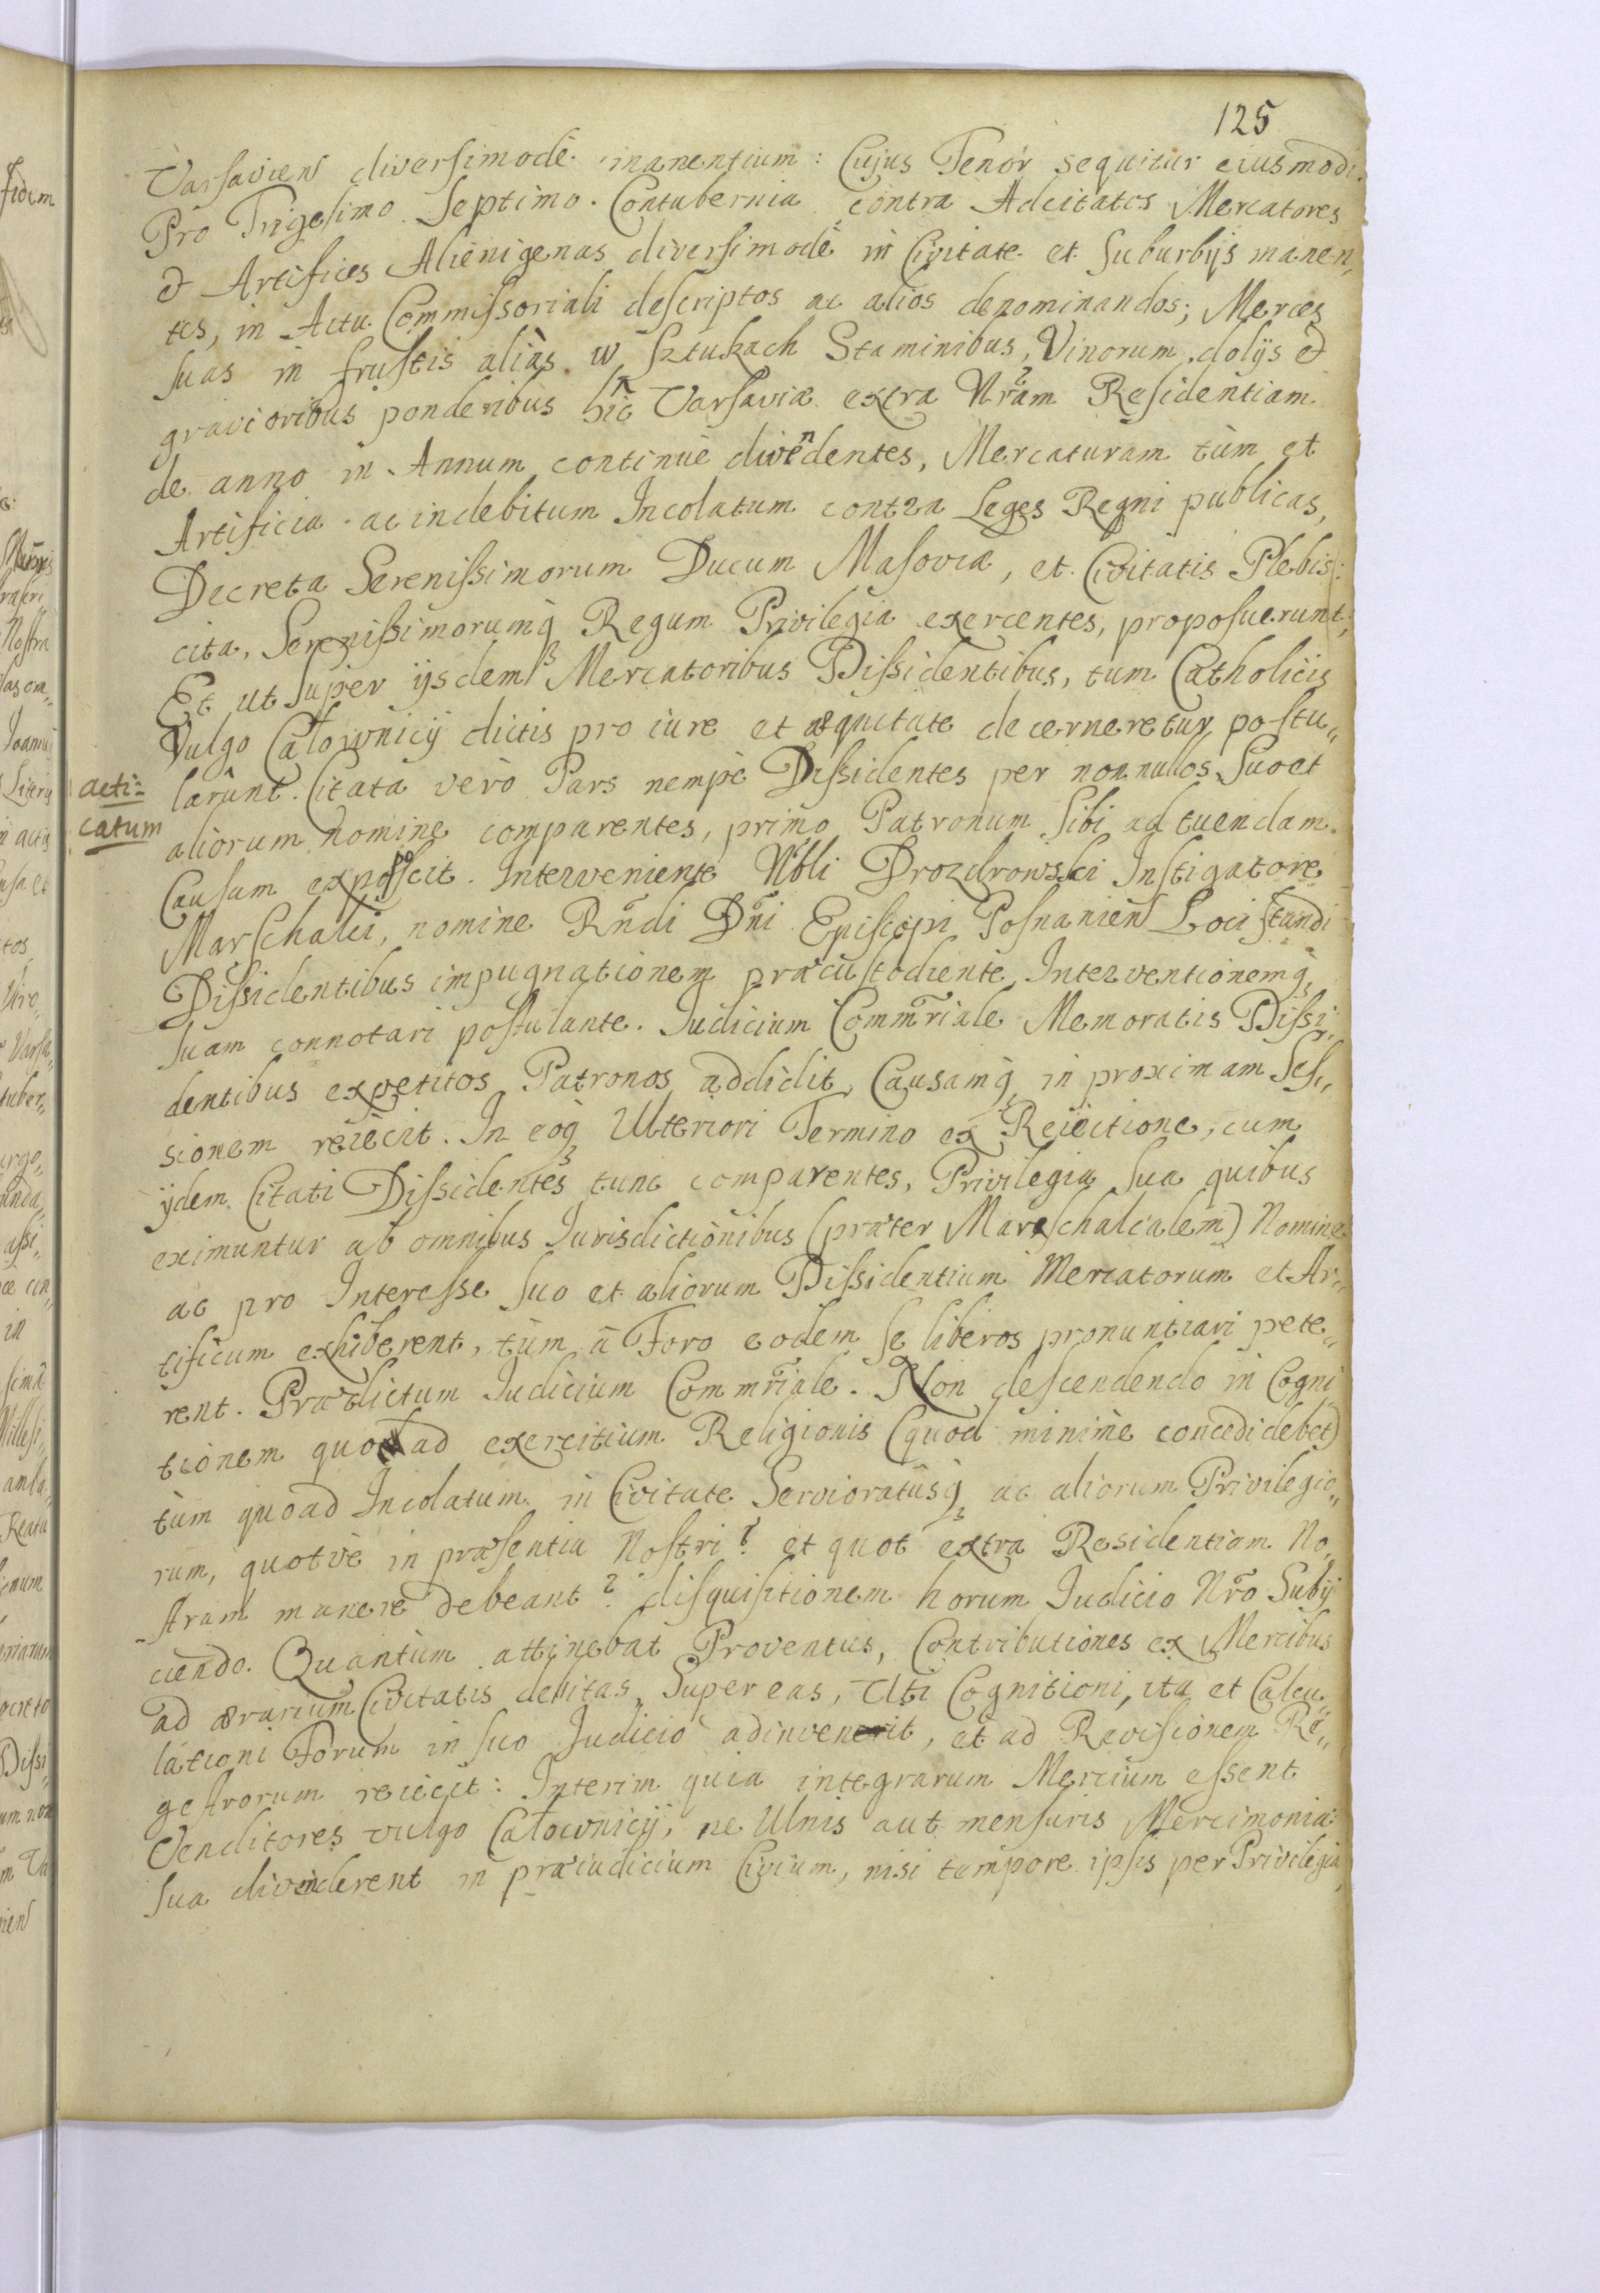 125
Varsavien diversimodè manentium: Cujus Tenor sequitur eiusmodi.
Pro Trigesimo Septimo. Contubernia contra Adcitatos Mercatores
et Artifices Alienigenas diversimodè in Civitate et Suburbijs manen„
tes, in Actu Commissoriali descriptos ac alios denominandos; Merces
suas in frustis aliàs w Sztukach Staminibus, Vinorum dolijs et
gravioribus ponderibus hîc Varsaviæ extra Nrãm Residentiam
de anno in Annum continuè divendentes, Mercaturam tùm et
Artificia ac indebitum Incolatum contra Leges Regni publicas,
Decreta Serenissimorum Ducum Masoviæ, et Civitatis Plebis:
cita, Serenissimorumq3 Regum Privilegia exercentes, proposuerunt;
Et ut super ijsdem Mercatoribus Dissidentibus, tum Catholicis
Vulgo Całownicy dictis pro iure et æquitate decerneretur postu„
larûnt. Citata verò Pars nempè Dissidentes per nonnullos Suo et
acti=
catum
aliorum nomine comparentes, primo Patronum Sibi ad tuendam
Causam expoposcit. Interveniente Nbli Drozdrowski Instigatore
Marschalci, nomine Rñdi Dñi Episcopi Posnanien Loci standi
Dissidentibus impugnationem præcustodiente, Interventionemq3
suam connotari postulante. Iudicium Commr̃iale Memoratis Dissi„
dentibus expetitos Patronos addidit, Causamq3 in proximam Ses„
sionem reiecit. In eoq3 Ulteriori Termino ex Reiectione, cum
ijdem Citati Dissidentes tunc comparentes, Privilegia sua quibus
eximuntur ab omnibus Iurisdictionibus (præter Mareschalcalem) Nomine
ac pro Interesse suo et aliorum Dissidentium Mercatorum et Ar„
tificum exhiberent, tùm à Foro eodem se liberos pronuntiari pete„
rent. Prædictum Iudicium Commr̃iale. Non descendendo in Cogni
tionem quoad exercitium Religionis (quod minimè concedi debet)
tùm quoad Incolatum in Civitate Servioratusq3 ac aliorum Privilegio„
rum, quotvè in præsentia Nostri? et quot extra Residentiam No„
stram manere debeant? disquisitionem horum Iudicio Nrõ Subij
ciendo. Quantùm attinebat Proventus, Contributiones ex Mercibus
ad ærarium Civitatis debitas, Super eas, Uti Cognitioni, ita et Calcu„
lationi Forum in suo Iudicio adinvenit, et ad Revisionem Re„
gestrorum reiecit: Interim quia integrarum Mercium essent
Venditores vulgo Całownicy, ne Ulnis aut mensuris Mercimonia
sua divenderent in præiudicium Civium, nisi tempore ipsis per Privilegia